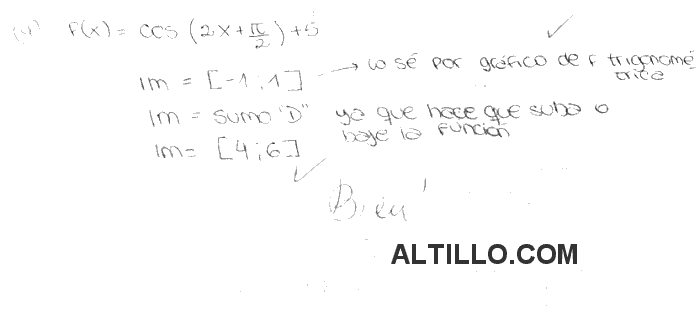 (4) F(x) = cos (2x + π/2) + 5
Im = [-1 ; 1] → lo sé por gráfico de f trigonomé
trica
Im = sumo "D" ya que hace que suba o
baje la función
Im = [4 ; 6]
Bien!
ALTILLO.COM